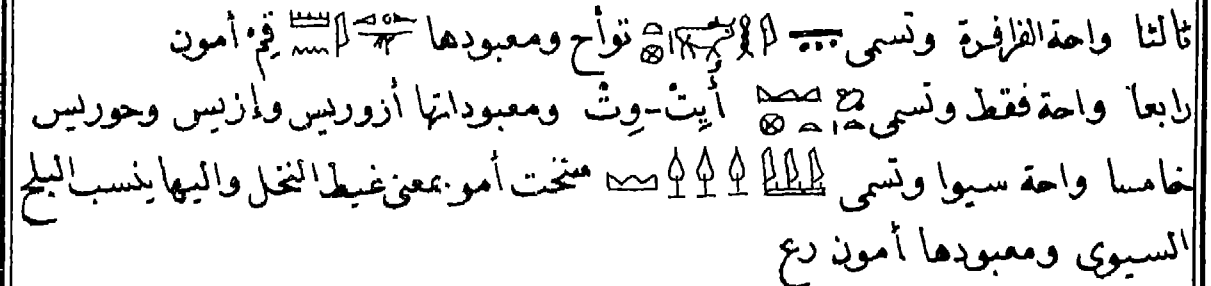 ثالثا واحة الفرافرة وتسمى توأح ومعبودها قِم أمون
رابعا واحة فقط وتسمى أَيِتْ-وِتْ ومعبوداتها أزوريس وإزيس وحوريس
خامسا واحة سيوا وتسمى سخت أمو بمعنى غيط النخل واليها ينسب البلح
السيوى ومعبودها أمون رع